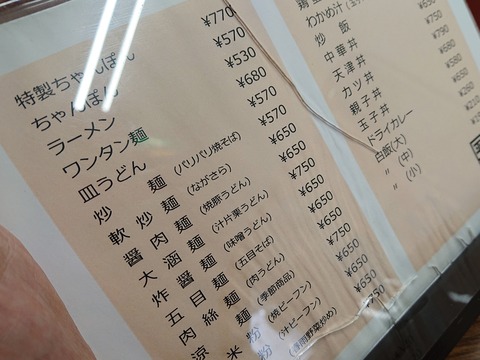 特製ちゃんぽん ¥770
ちゃんぽん ¥570
ラーメン ¥530
ワンタン麺 ¥680
皿うどん ¥570
炒麺(パリパリ焼そば) ¥650
軟炒麺(ながさら) ¥750
醤肉麺(焼豚うどん) ¥650
大涵麺(汁片栗うどん) ¥650
炸醤麺(味噌うどん) ¥650
五目麺(五目そば) ¥750
肉絲麺(肉うどん) ¥650
涼麺(季節商品) ¥650
米粉(焼ビーフン) ¥650
粉(汁ビーフン)
わかめ汁
炒飯
中華丼 ¥650
天津丼 ¥750
カツ丼 ¥790
親子丼 ¥680
玉子丼 ¥580
ドライカレー ¥650
白飯(大) ¥260
〃(中) ¥210
〃(小)